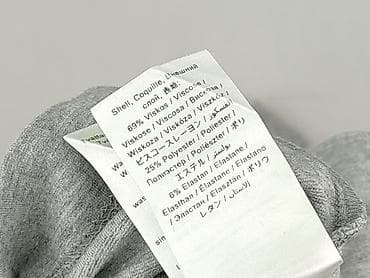 Shell, Coquille, Внешний
слой, 表地:
69% Viskos / Viscose /
Viskose / Viscosa / Вискоза /
Wiskoza / Viskóza / Viszkóz /
ビスコースレーヨン / الفسكوز
25% Polyester / Poliester /
Полиэстер / Poliészter / ポリ
エステル / بوليستر
6% Elastan / Elastane /
Elasthan / Élastane / Elastano
/ Эластан / Elasztán / ポリウ
レタン / الاستان
was
wit
was
sin